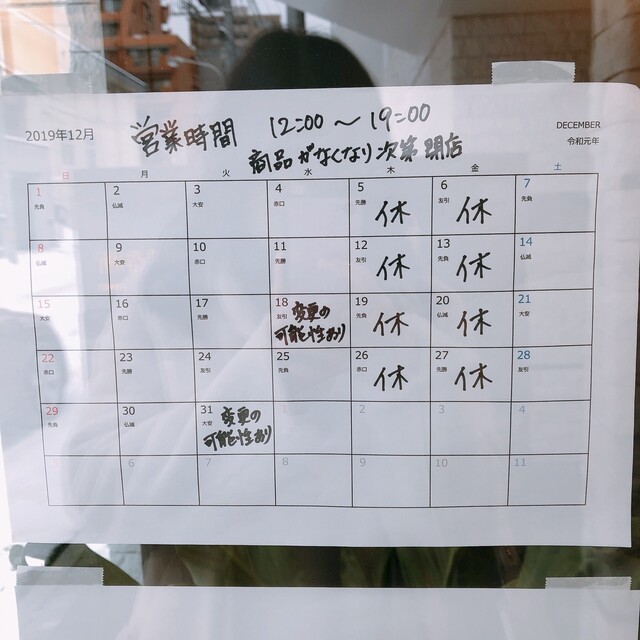 2019年12月
営業時間 12:00〜19:00
DECEMBER
令和元年
商品がなくなり次第閉店
日 月 火 水 木 金 土
1 2 3 4 5 6 7
先負 仏滅 大安 赤口 先勝 友引 先負
休 休
8 9 10 11 12 13 14
仏滅 大安 赤口 先勝 友引 先負 仏滅
休 休
15 16 17 18 19 20 21
大安 赤口 先勝 友引 先負 仏滅 大安
変更の
可能性あり
休 休
22 23 24 25 26 27 28
赤口 先勝 友引 先負 赤口 先勝 友引
休 休
29 30 31 1 2 3 4
先負 仏滅 大安
変更の
可能性あり
5 6 7 8 9 10 11